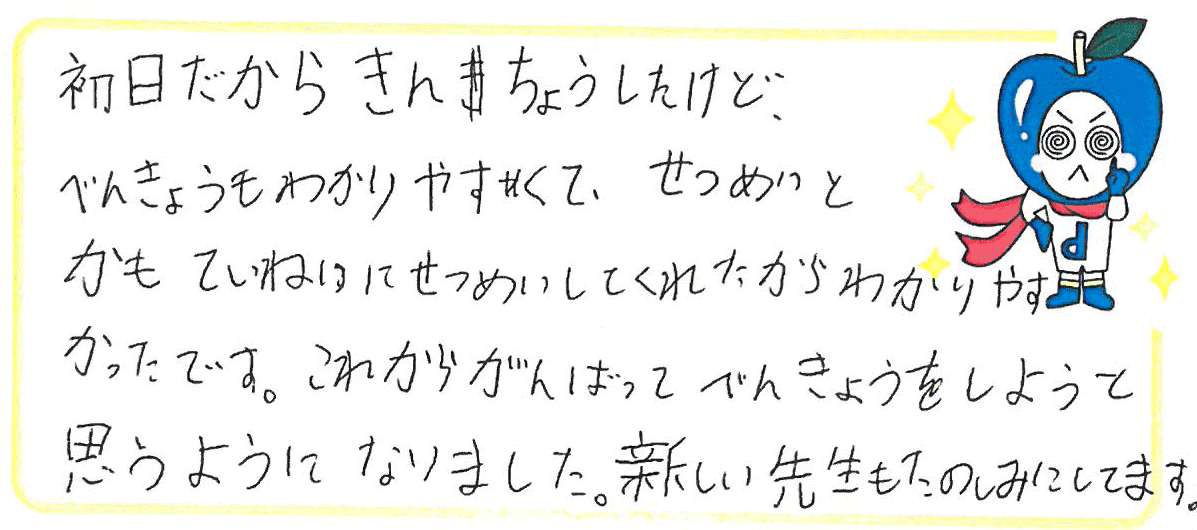 初日だからきんちょうしたけど、
べんきょうもわかりやすくて、せつめいと
かもていねいにせつめいしてくれたからわかりやす
かったです。これからがんばってべんきょうをしようと
思うようになりました。新しい先生もたのしみにしてます。
d